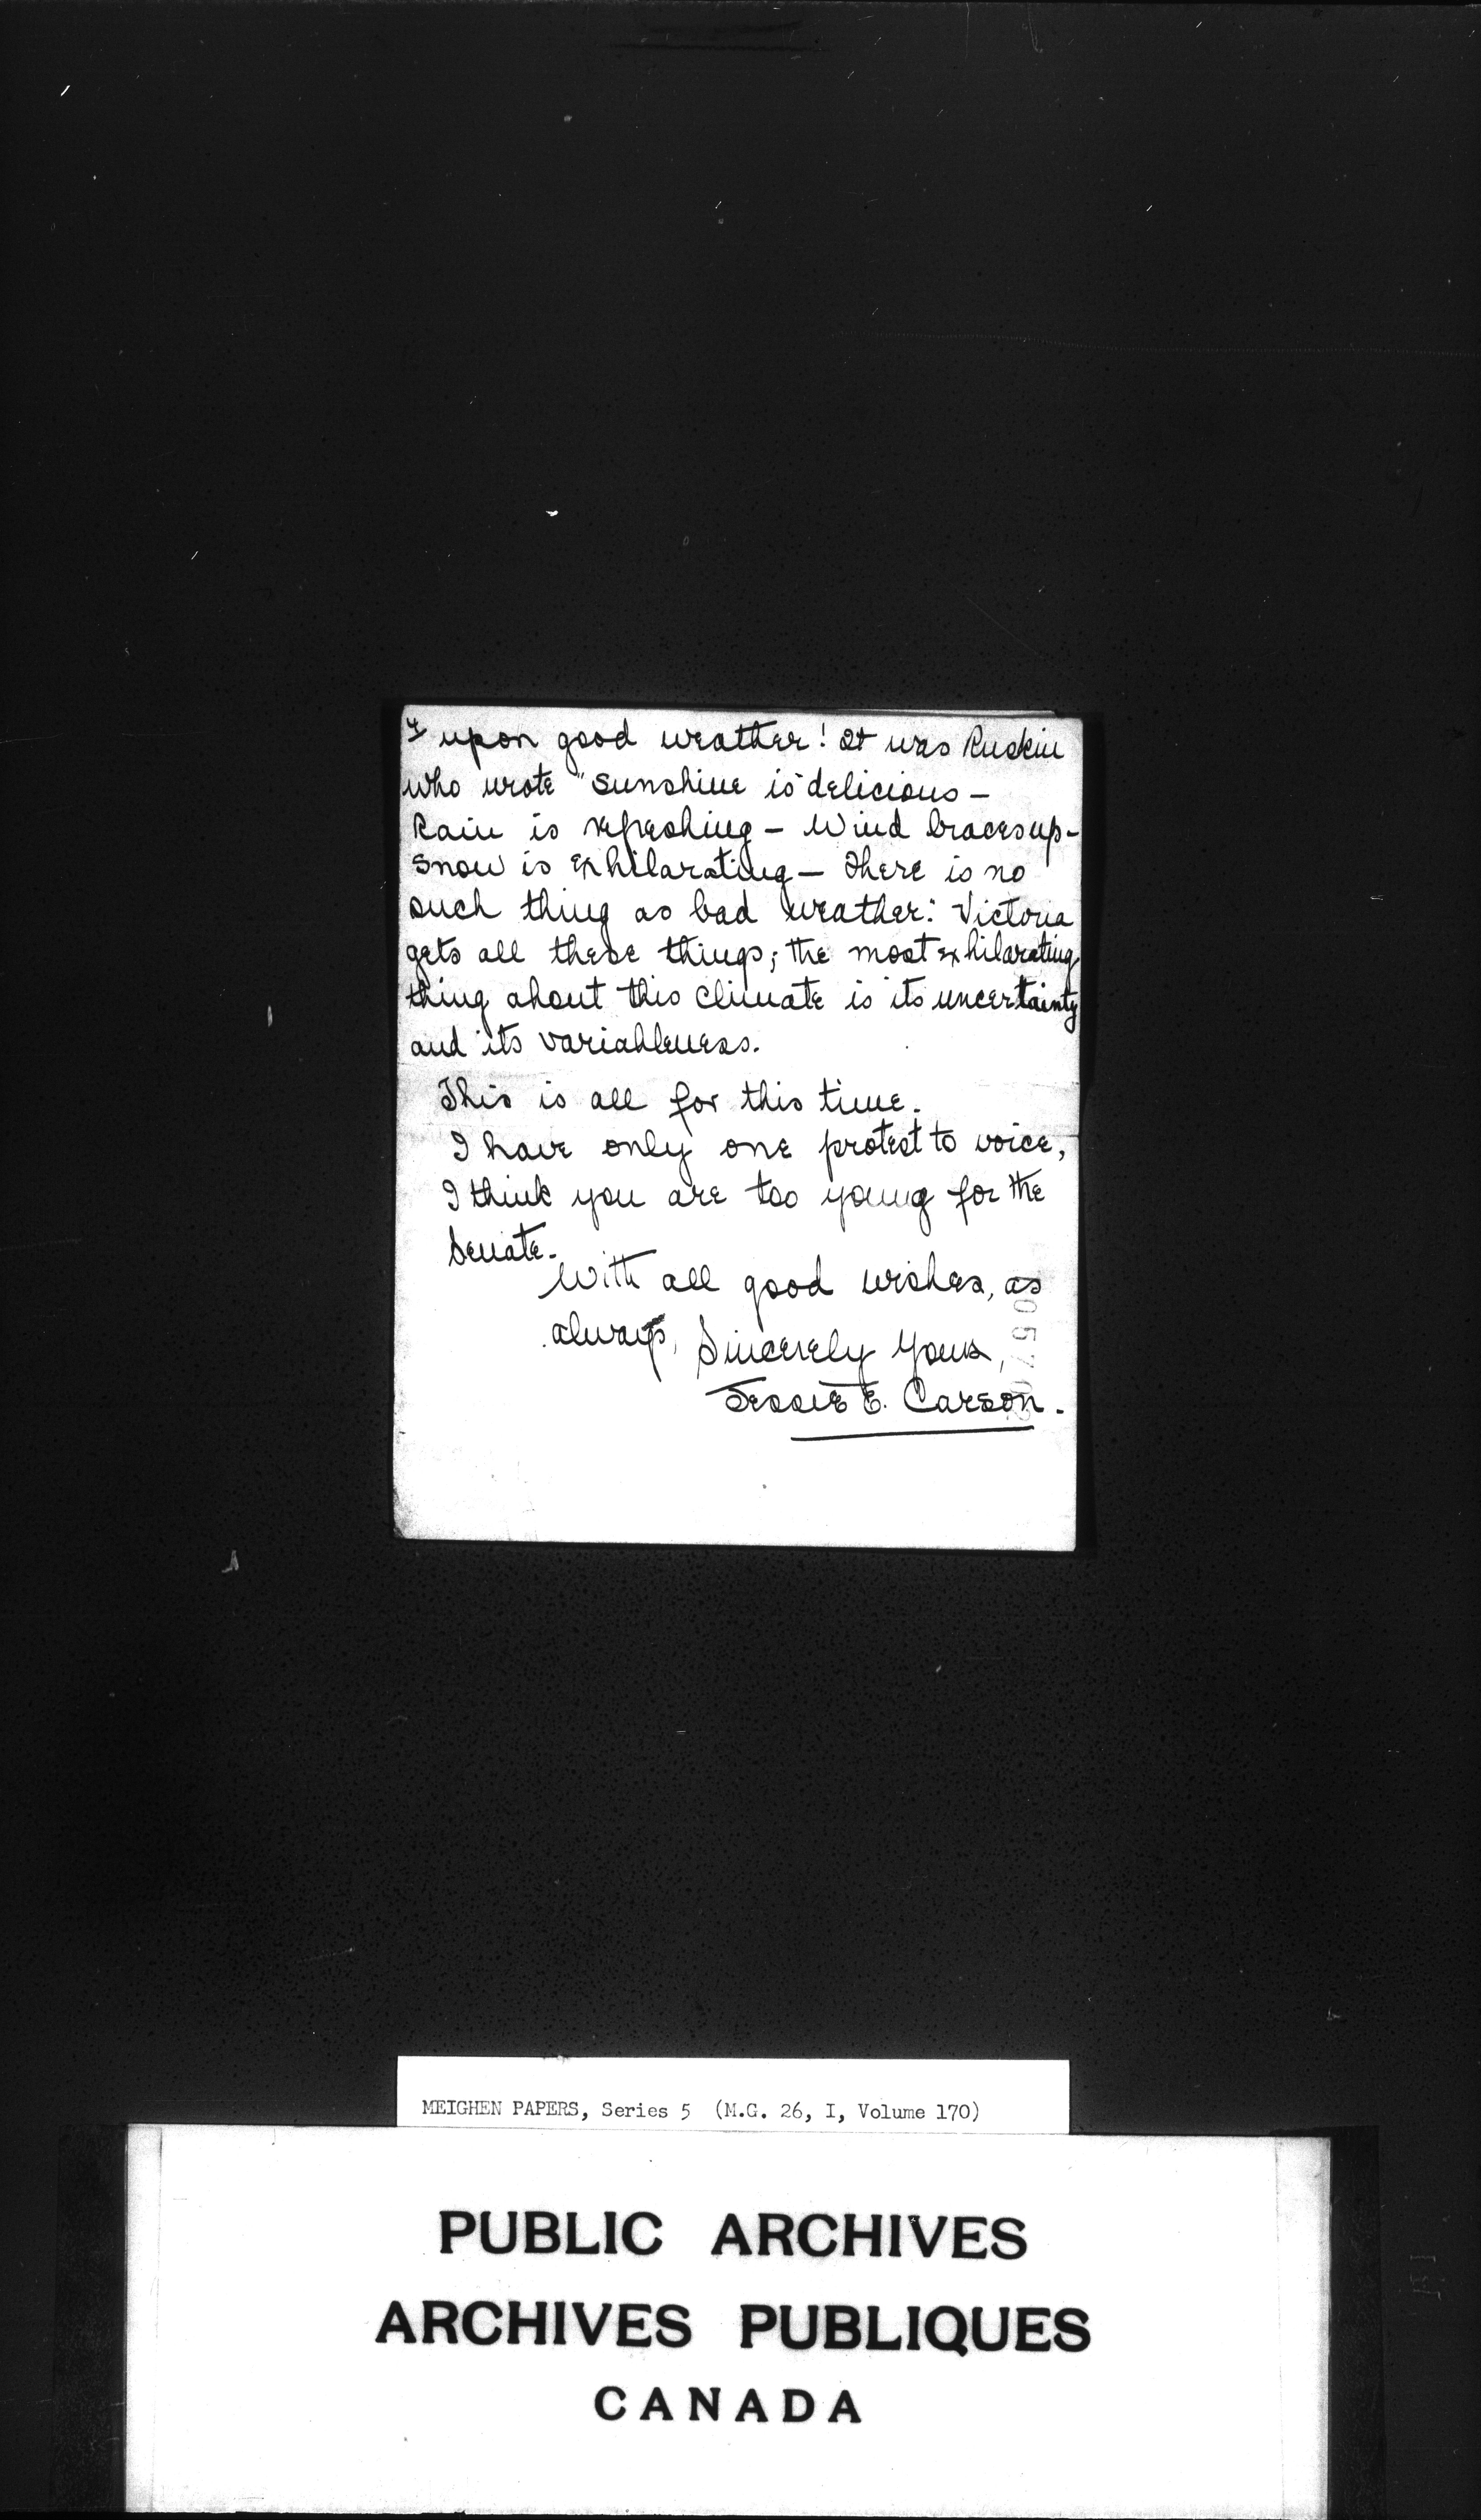 4 upon good weather! It was Ruskin
who wrote "Sunshine is delicious –
Rain is refreshing – Wind braces up –
Snow is exhilarating – There is no
such thing as bad weather." Victoria
gets all these things; the most exhilarating
thing about this climate is its uncertainty
and its variableness.
This is all for this time.
I have only one protest to voice,
I think you are too young for the
Senate.
With all good wishes, as
always,
Sincerely Yours,
Jessie E. Carson.
MEIGHEN PAPERS, Series 5 (M.G. 26, I, Volume 170)
PUBLIC ARCHIVES
ARCHIVES PUBLIQUES
CANADA